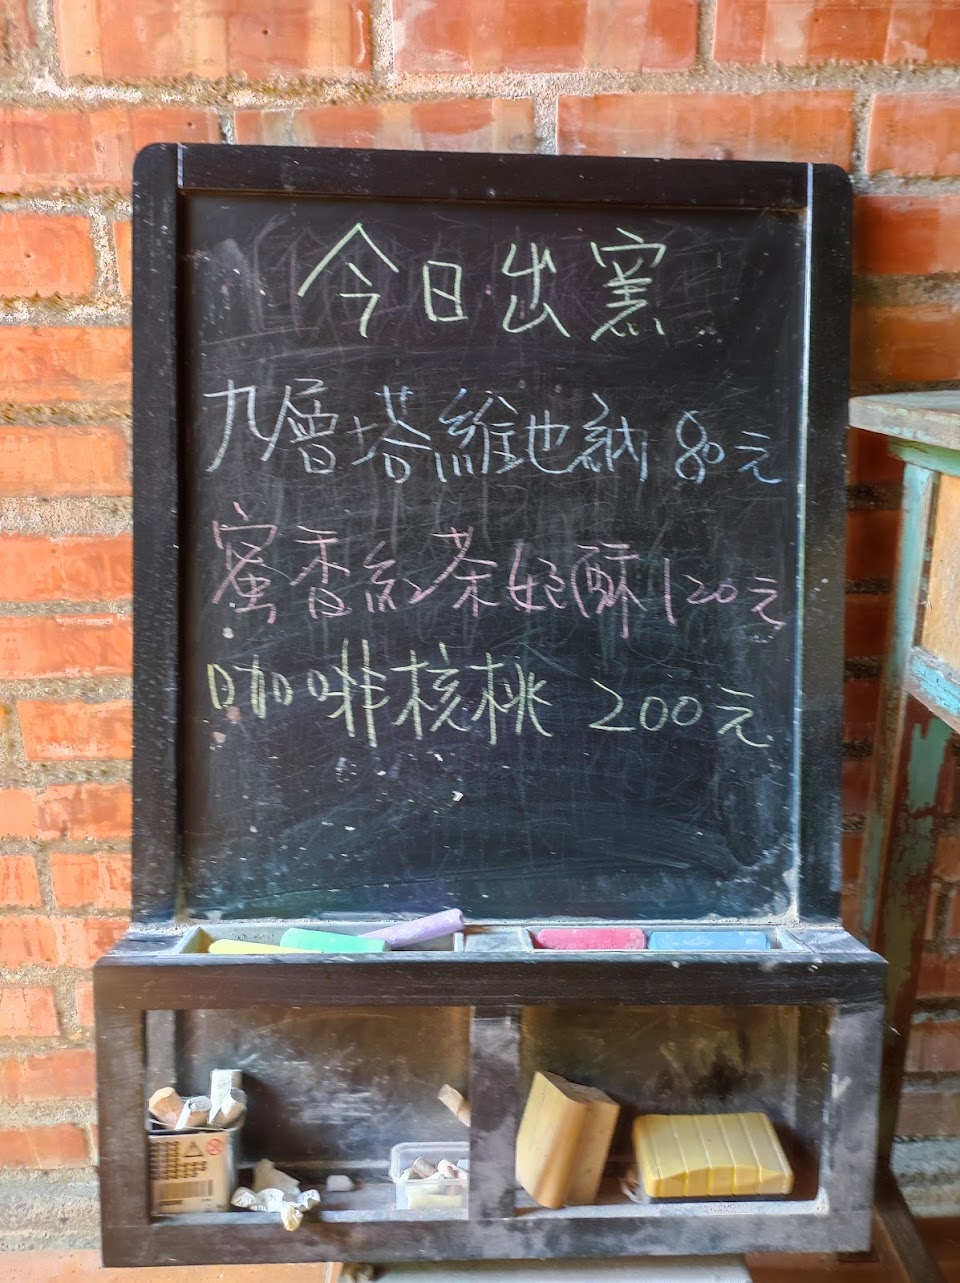 今日出窯
九層塔維也納 80元
蜜香紅茶奶酥 120元
咖啡核桃 200元